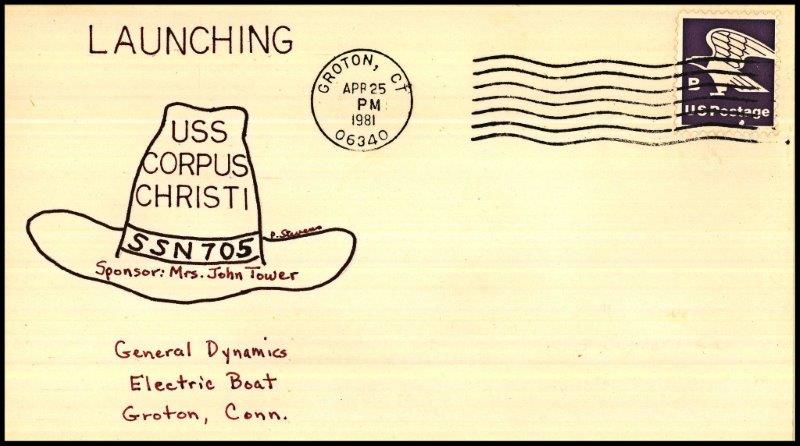 LAUNCHING
GROTON, CT
APR 25
PM
1981
06340
B
US Postage
USS
CORPUS
CHRISTI
SSN705
P. Stevens
Sponsor: Mrs. John Tower
General Dynamics
Electric Boat
Groton, Conn.